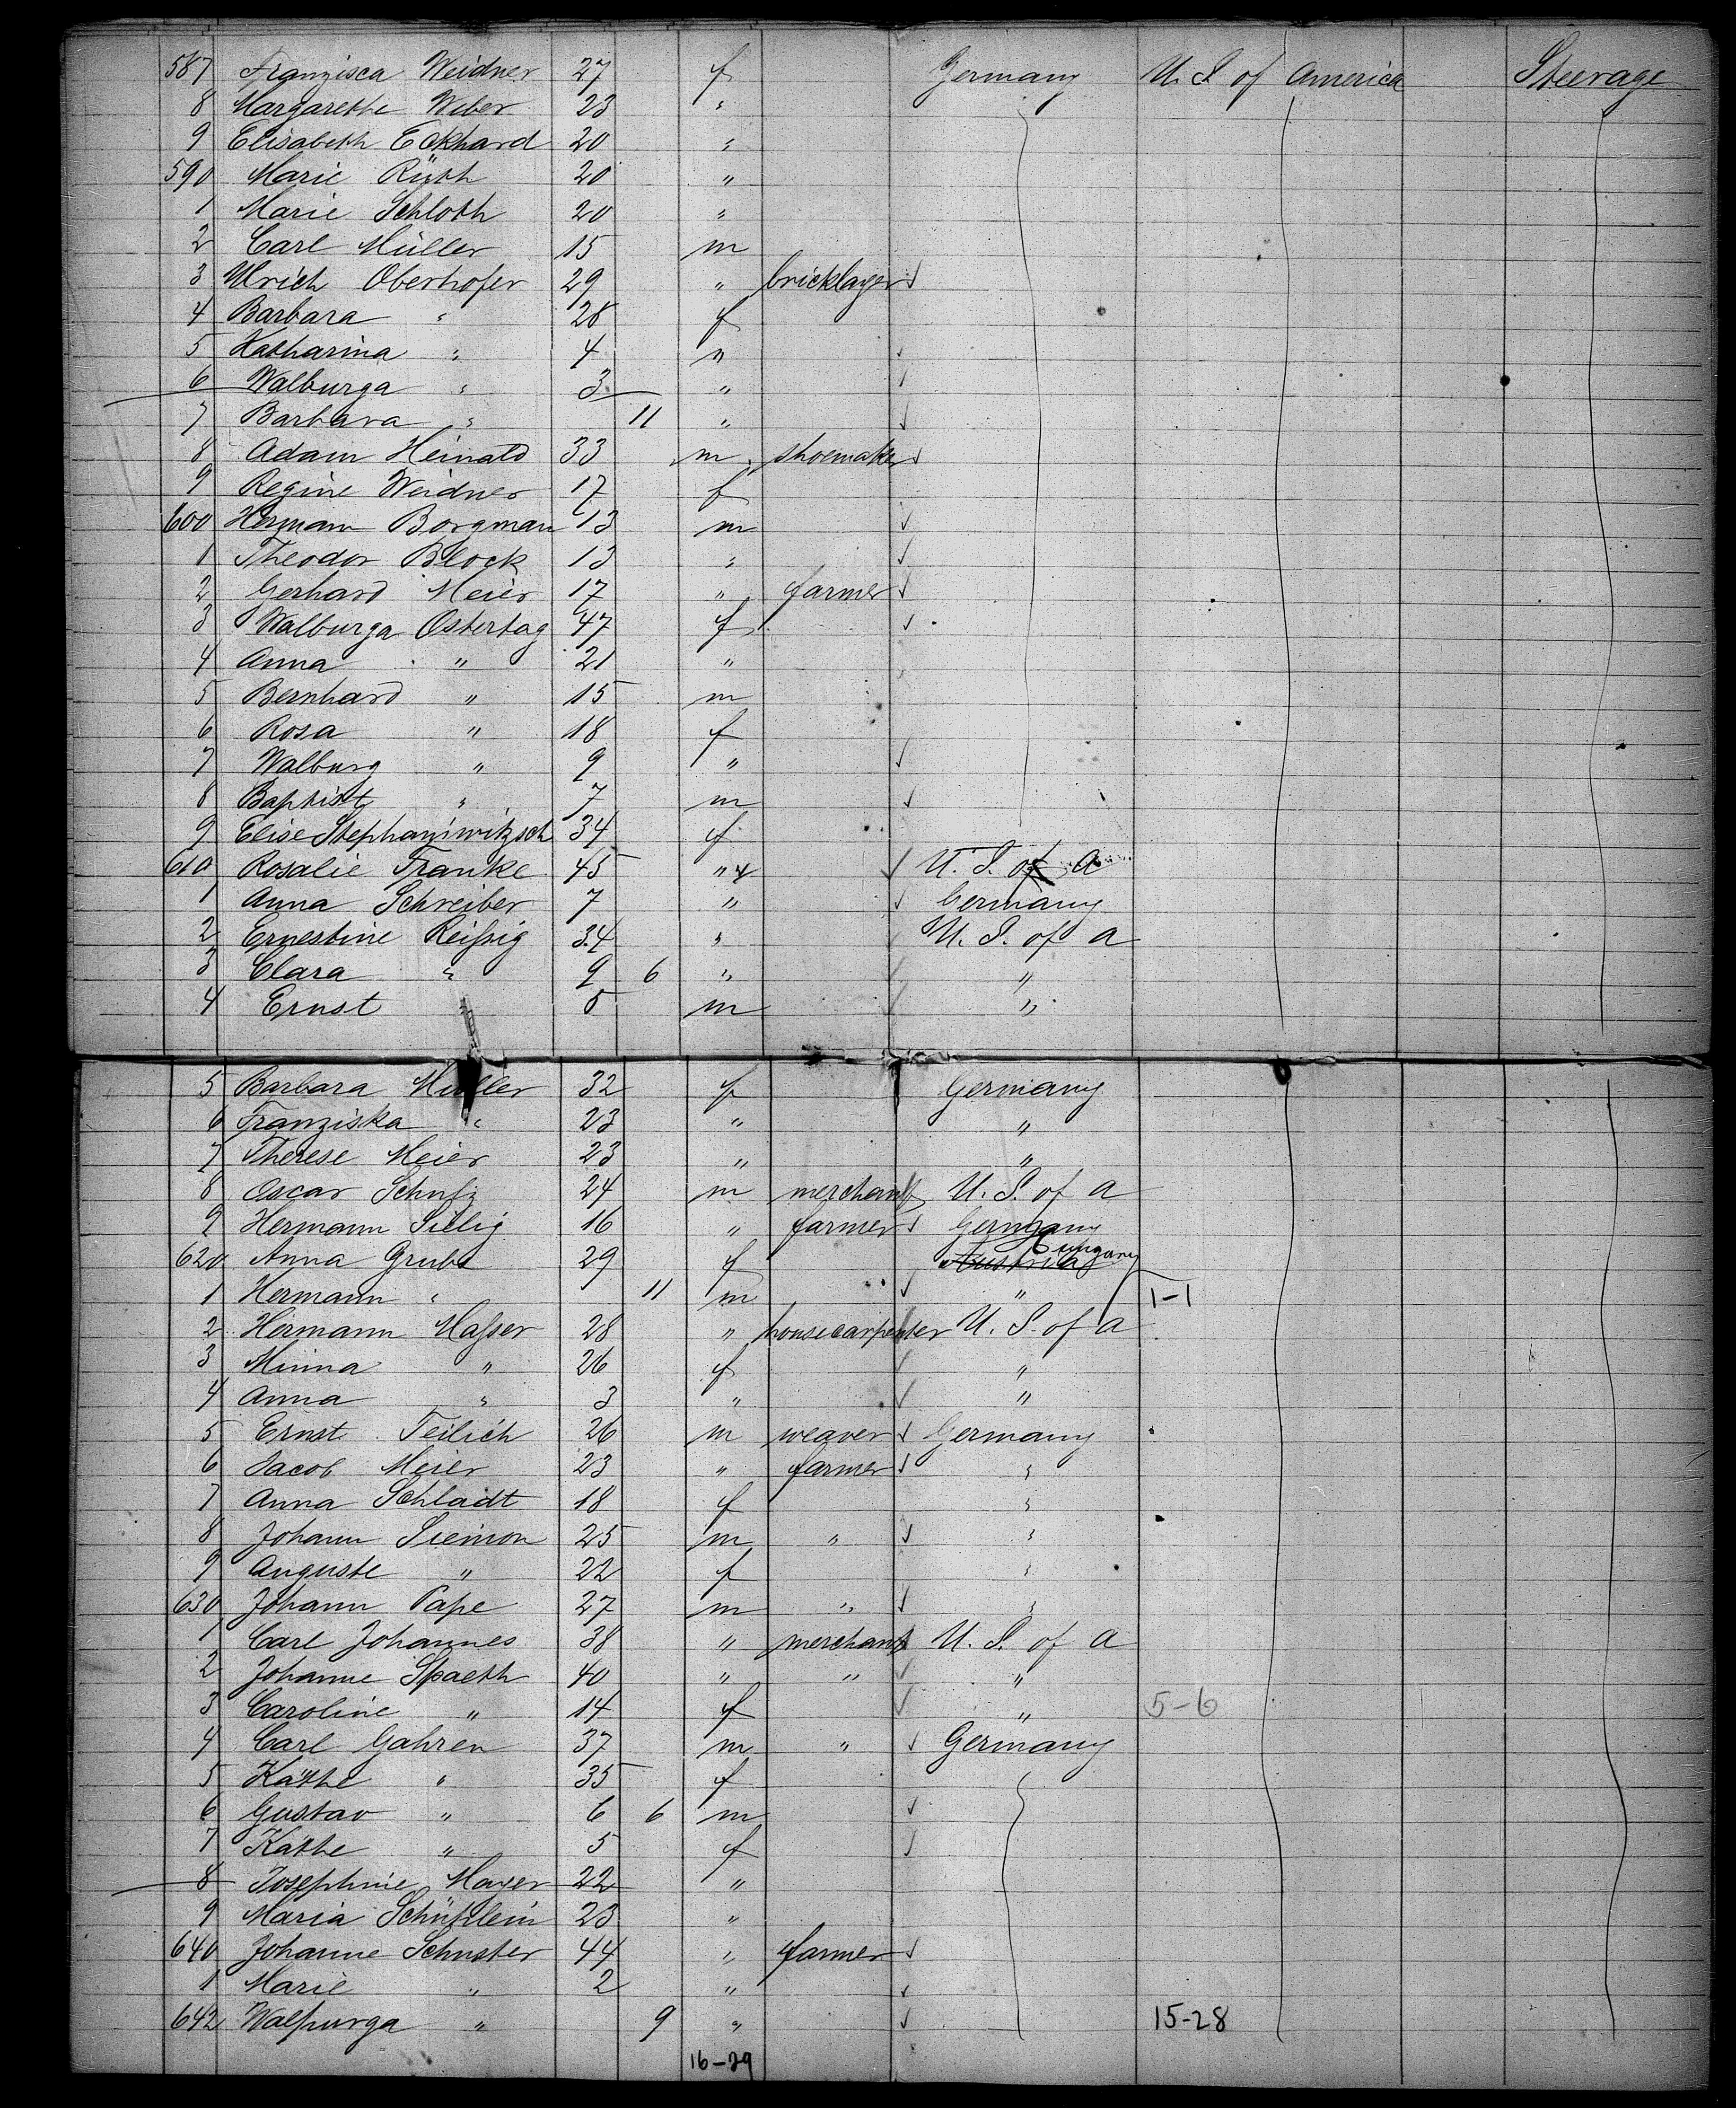 587 Franzisca Weidner 27 f Germany U. S of America Steerage
8 Margarethe Weber 23 "
9 Elisabeth Eckhard 20 "
590 Marie Rüth 20 "
1 Marie Schloth 20 "
2 Carl Müller 15 m
3 Ulrich Oberhofer 29 " bricklayer
4 Barbara " 28 f
5 Katharina " 4 "
6 Walburga " 3 "
7 Barbara " 11 "
8 Adam Heinald 33 m shoemaker
9 Regine Weidner 17 f
600 Hermann Borgman 13 m
1 Theodor Block 13 "
2 Gerhard Meier 17 " farmer
3 Walburga Ostertag 47 f
4 Anna " 21 "
5 Bernhard " 15 m
6 Rosa " 18 f
7 Walburg " 9 "
8 Baptist " 7 m
9 Elise Stephaniwitzsch 34 f
610 Rosalie Franke 45 " U. S. of A
1 Anna Schreiber 7 " Germany
2 Ernestine Reißig 34 " U. S. of A
3 Clara " 9 6 " "
4 Ernst " 5 m "
5 Barbara Müller 32 f Germany
6 Franziska " 23 " "
7 Therese Meier 23 " "
8 Oscar Schulz 24 m merchant U. S. of A
9 Hermann Sielig 16 " farmer Germany
620 Anna Grube 29 f Austria Hungary
1 Hermann " 11 m " 1-1
2 Hermann Maßer 28 " housecarpenter U. S. of A
3 Minna " 26 f "
4 Anna " 3 " "
5 Ernst Teilich 26 m weaver Germany
6 Jacob Meier 23 " farmer "
7 Anna Schladt 18 f "
8 Johann Siemon 25 m " "
9 Auguste " 22 f "
630 Johann Pape 27 m " "
1 Carl Johannes 38 " merchant U. S. of A
2 Johanne Spaeth 40 " " "
3 Caroline " 14 f " 5-6
4 Carl Gahren 37 m " Germany
5 Käthe " 35 f
6 Gustav " 6 6 m
7 Käthe " 5 f
8 Josephine Mayer 22 "
9 Maria Schühlein 23 "
640 Johanne Schuster 44 " farmer
1 Marie " 2 "
642 Walpurga " 9 " 15-28
16-29